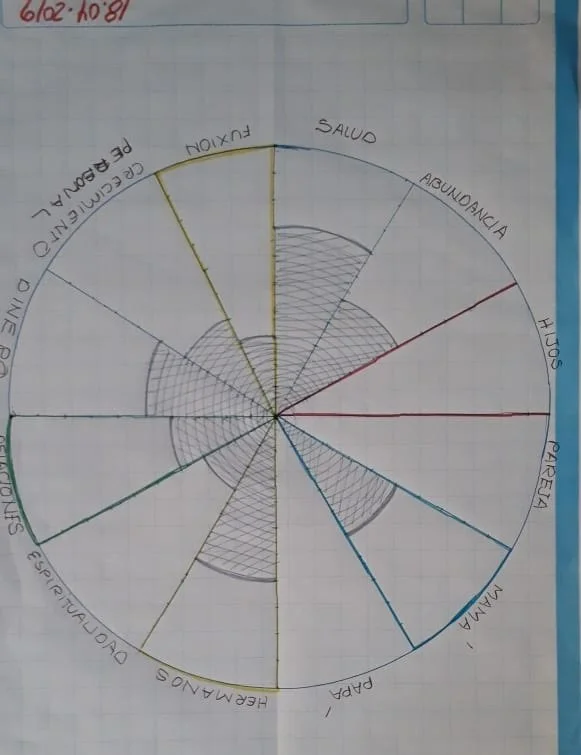 18.04.2019
SALUD
ABUNDANCIA
HIJOS
PAREJA
MAMÁ
PAPÁ
HERMANOS
ESPIRITUALIDAD
RELACIONES
DINERO
CRECIMIENTO
PERSONAL
FUXION